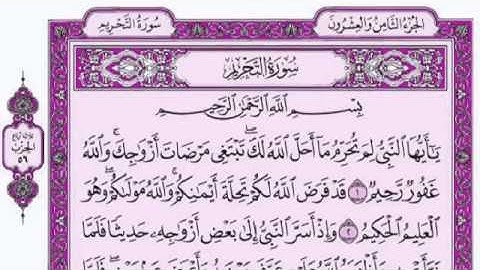 سُورَةُ التَّحْرِيمِ
الجُزْءُ الثَّامِنُ وَالعِشْرُونَ
سُورَةُ التَّحْرِيمِ
بِسْمِ اللَّهِ الرَّحْمَٰنِ الرَّحِيمِ
يَٰٓأَيُّهَا ٱلنَّبِىُّ لِمَ تُحَرِّمُ مَآ أَحَلَّ ٱللَّهُ لَكَ ۖ تَبْتَغِى مَرْضَاتَ أَزْوَٰجِكَ ۚ وَٱللَّهُ
غَفُورٌ رَّحِيمٌ ١ قَدْ فَرَضَ ٱللَّهُ لَكُمْ تَحِلَّةَ أَيْمَٰنِكُمْ ۚ وَٱللَّهُ مَوْلَىٰكُمْ ۖ وَهُوَ
ٱلْعَلِيمُ ٱلْحَكِيمُ ٢ وَإِذْ أَسَرَّ ٱلنَّبِىُّ إِلَىٰ بَعْضِ أَزْوَٰجِهِۦ حَدِيثًا فَلَمَّا
الحِزْبُ
٥٦